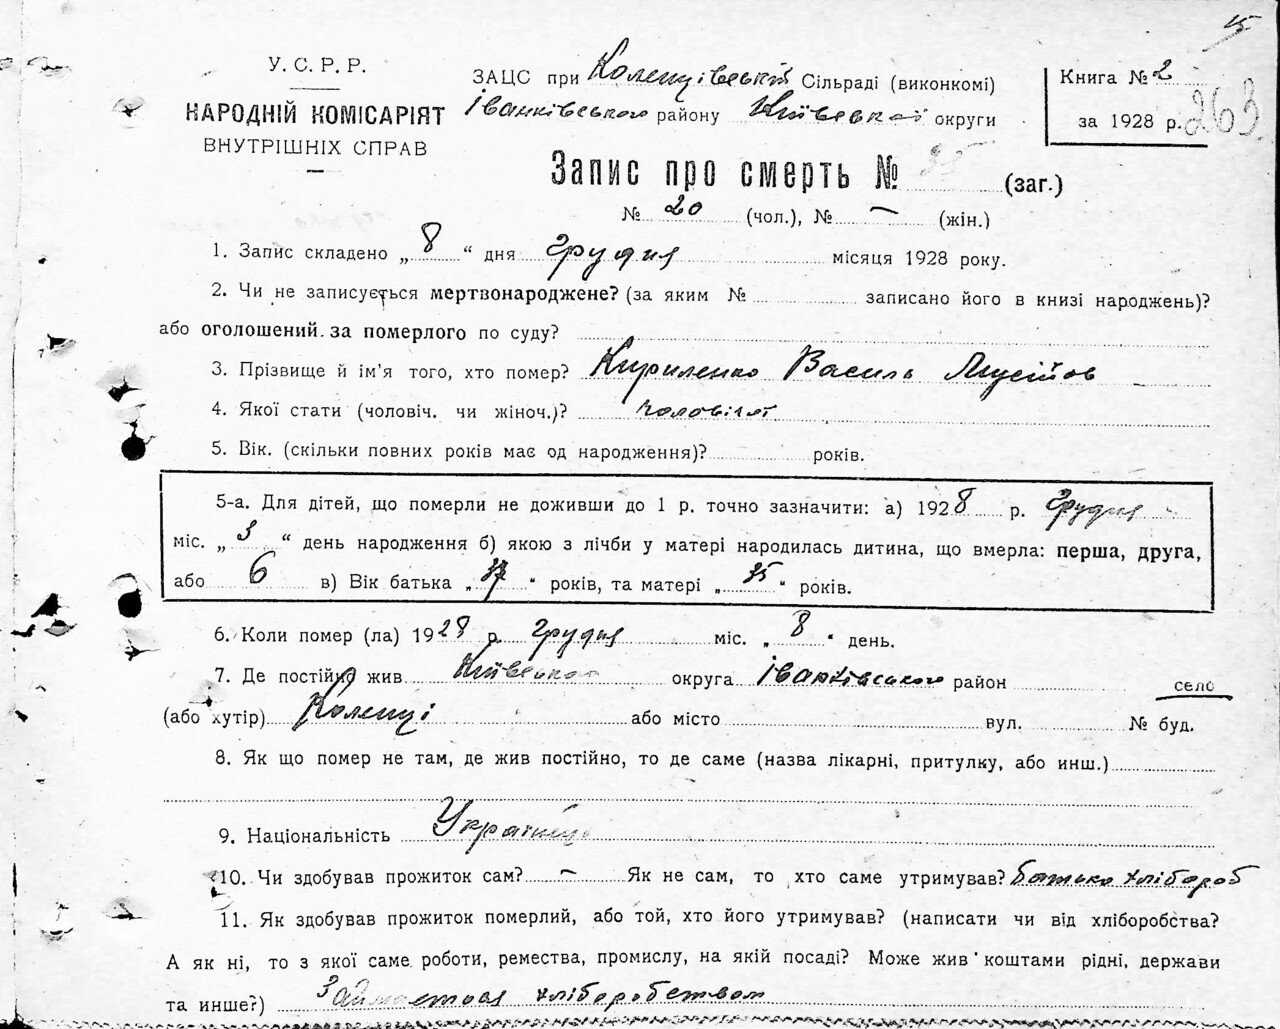 15
У. С. Р. Р.
НАРОДНІЙ КОМІСАРІЯТ
ВНУТРІШНІХ СПРАВ
ЗАЦС при Коленцівській Сільраді (виконкомі)
Іванківського району Київської округи
Книга № 2
за 1928 р. 263
Запис про смерть № 35 (заг.)
№ 20 (чол.), № — (жін.)
1. Запис складено „ 8 “ дня грудня місяця 1928 року.
2. Чи не записується мертвонароджене? (за яким № записано його в книзі народжень)?
або оголошений за померлого по суду?
3. Прізвище й ім'я того, хто помер? Кириленко Василь
4. Якої стати (чоловіч. чи жіноч.)? чоловічої
5. Вік. (скільки повних років має од народження)? років.
5-а. Для дітей, що померли не доживши до 1 р. точно зазначити: а) 1928 р. грудня
міс. „ 3 “ день народження б) якою з лічби у матері народилась дитина, що вмерла: перша, друга,
або 6 в) Вік батька „ 37 “ років, та матері „ 35 “ років.
6. Коли помер (ла) 1928 р. грудня міс. „ 8 “ день.
7. Де постійно жив Київської округа Іванківського район село
(або хутір) Коленці або місто вул. № буд.
8. Як що помер не там, де жив постійно, то де саме (назва лікарні, притулку, або инш.)
9. Національність Українець
10. Чи здобував прожиток сам? — Як не сам, то хто саме утримував? батько хлібороб
11. Як здобував прожиток померлий, або той, хто його утримував? (написати чи від хліборобства?
А як ні, то з якої саме роботи, ремества, промислу, на якій посаді? Може жив коштами рідні, держави
та инше?) Займається хліборобством